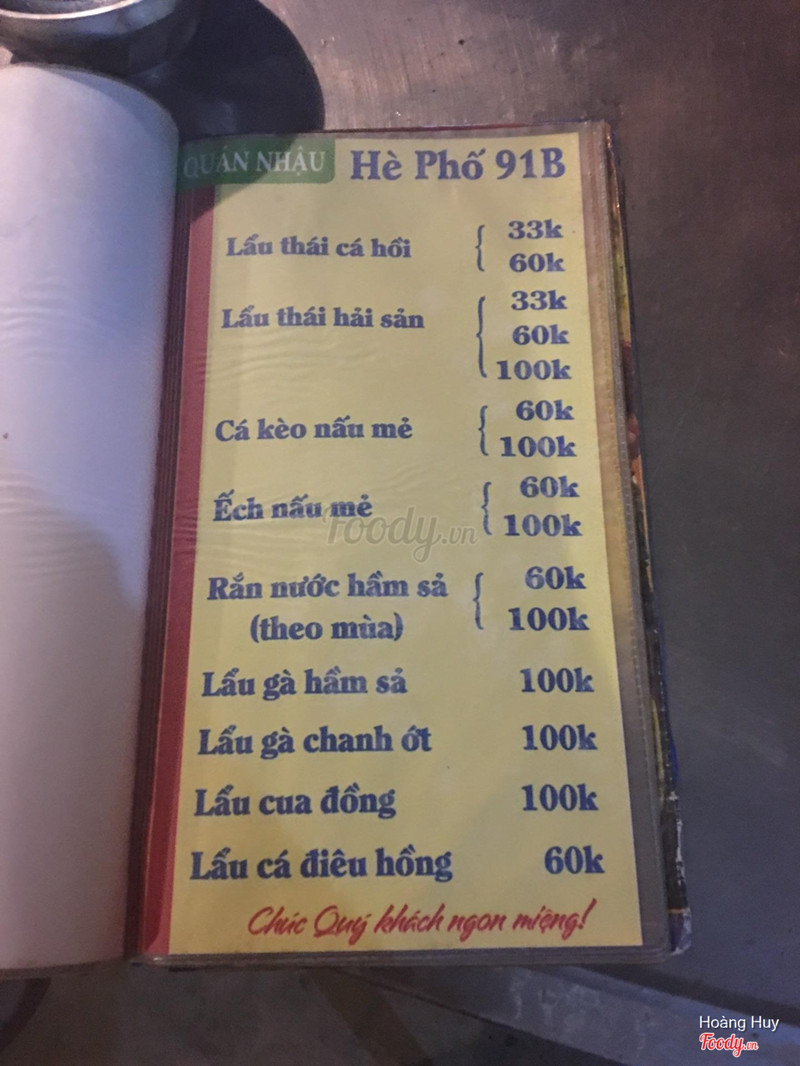 QUÁN NHẬU Hè Phố 91B
Lẩu thái cá hồi 33k
60k
Lẩu thái hải sản 33k
60k
100k
Cá kèo nấu mẻ 60k
100k
Ếch nấu mẻ 60k
100k
Rắn nước hầm sả 60k
(theo mùa) 100k
Lẩu gà hầm sả 100k
Lẩu gà chanh ớt 100k
Lẩu cua đồng 100k
Lẩu cá điêu hồng 60k
Chúc Quý khách ngon miệng!
Foody.vn
Hoàng Huy
Foody.vn